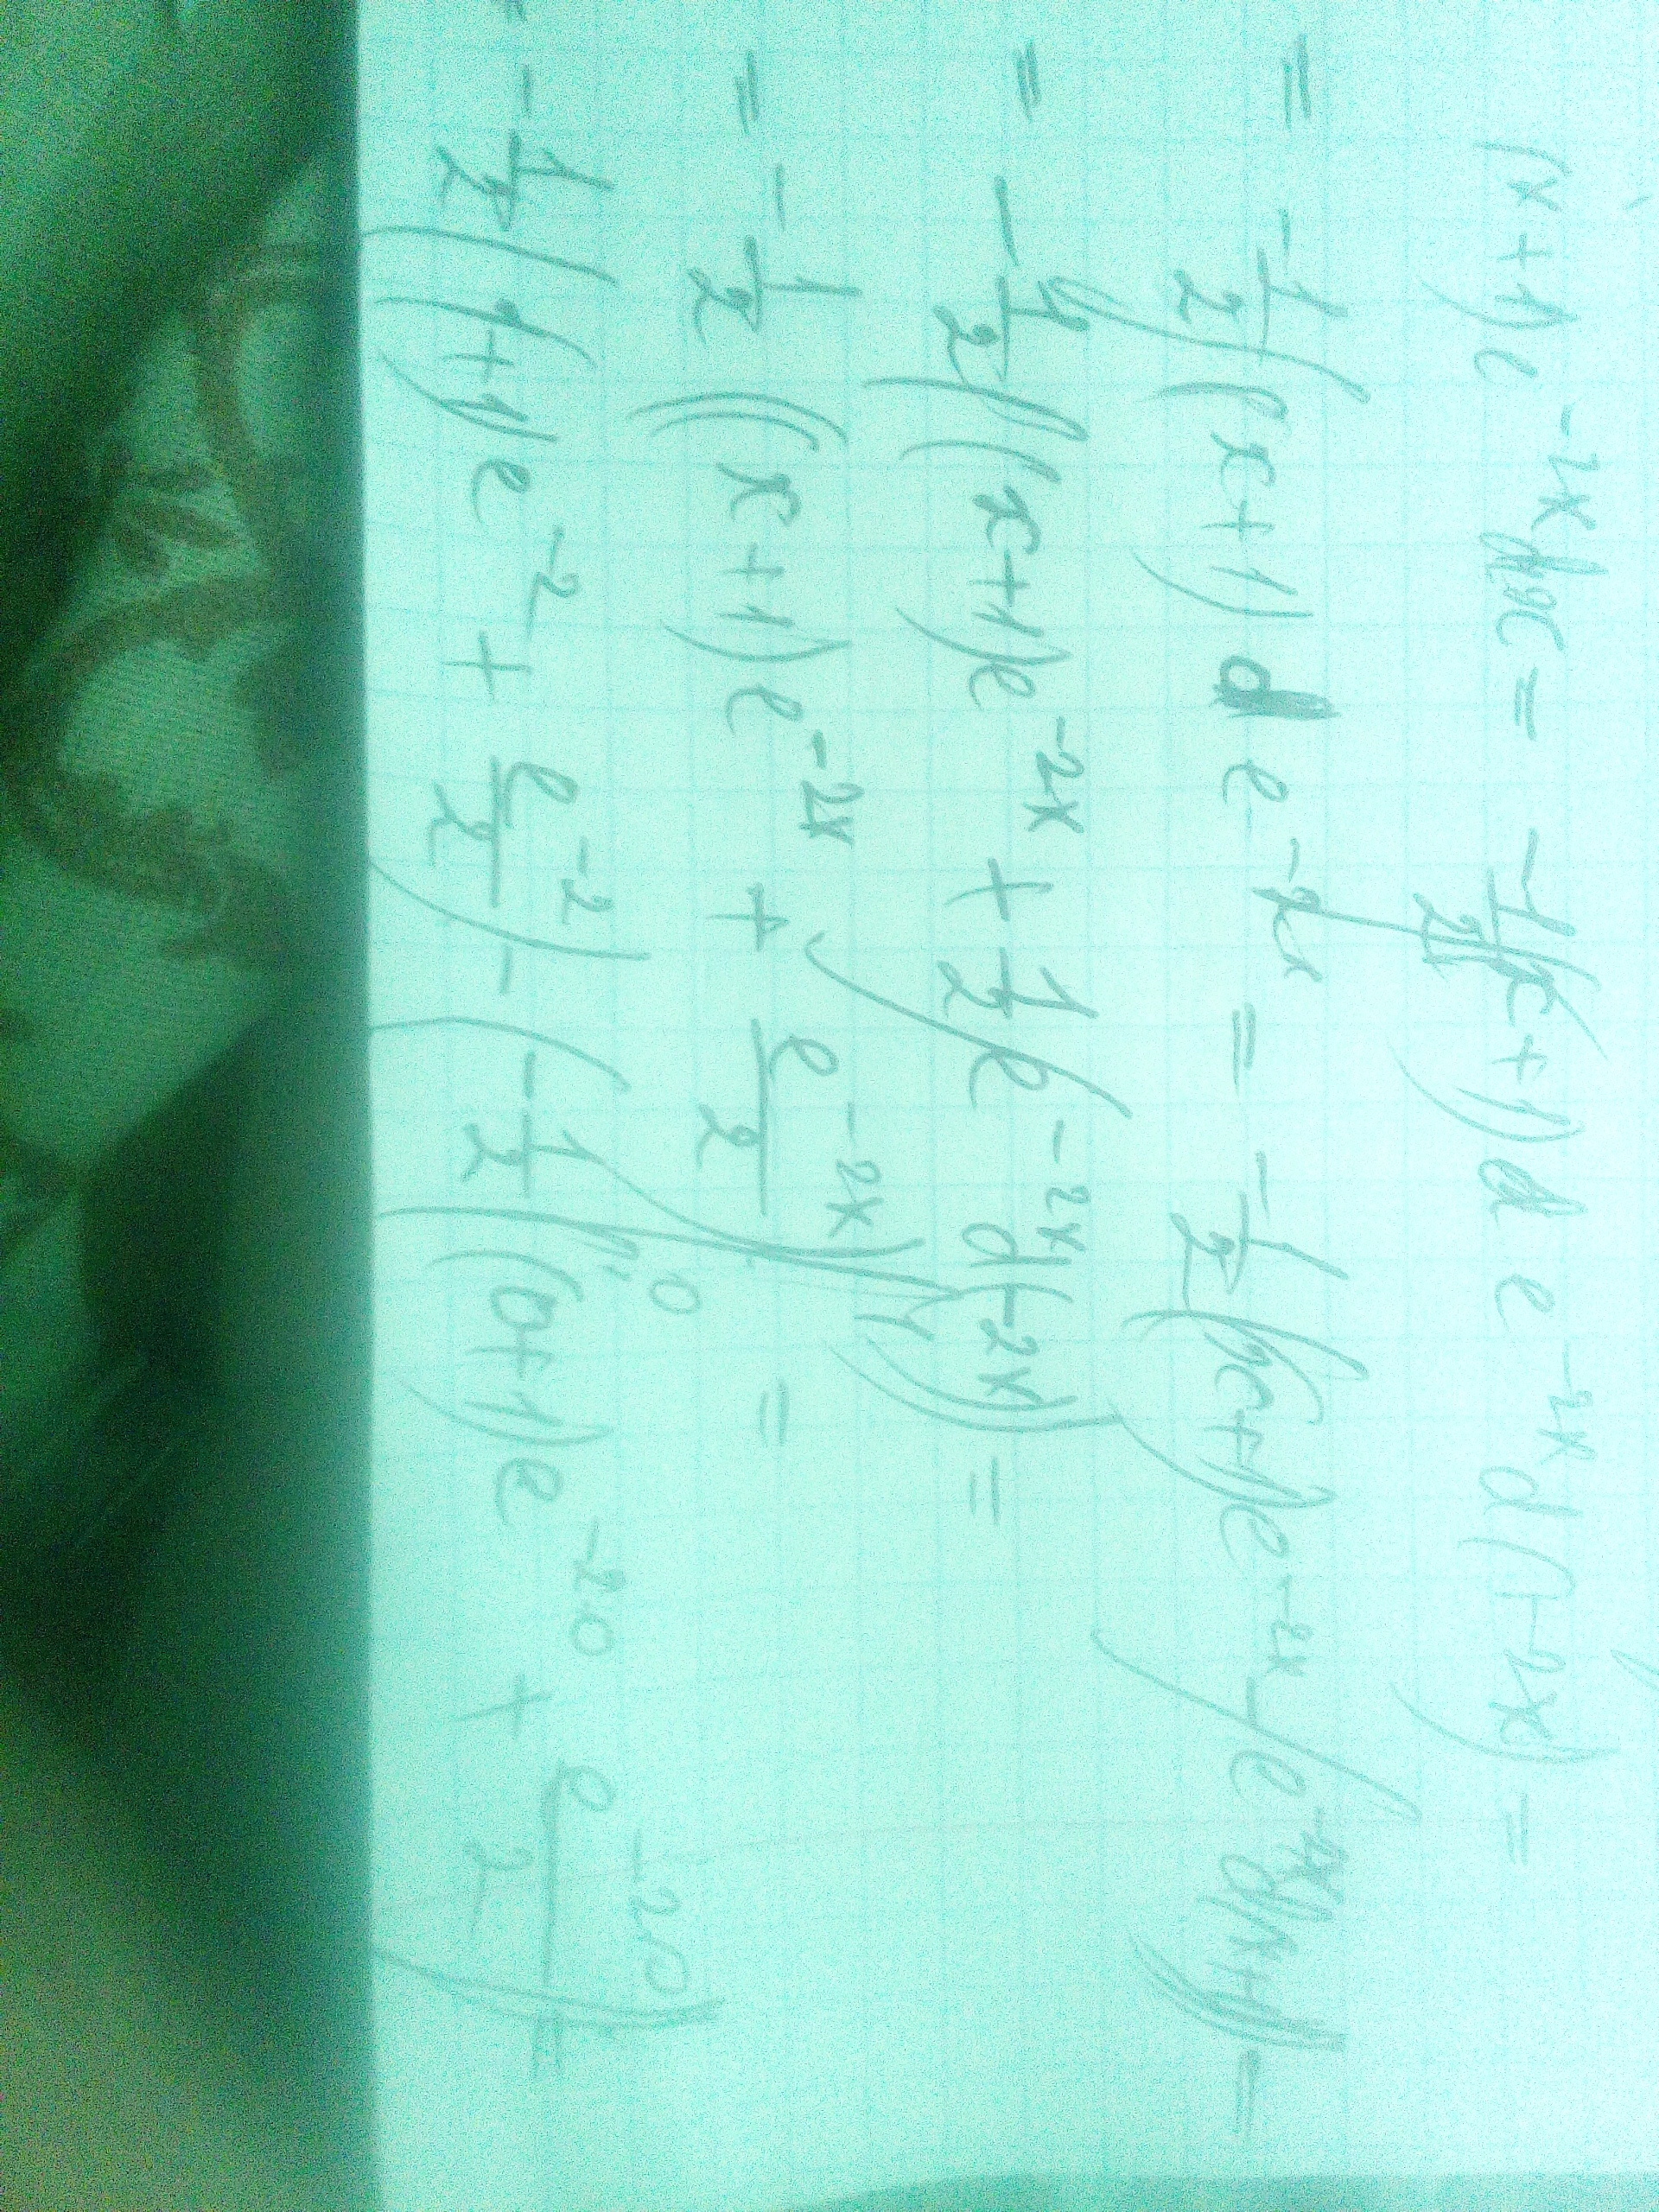 (x+1)e^{-2x}dx = -1/2 (x+1)d e^{-2x} d(-2x) =
= -1/2 ∫(x+1) d e^{-2x} = -1/2((x+1)e^{-2x} - ∫e^{-2x}d(x+1)) =
= -1/2((x+1)e^{-2x} + 1/2 ∫e^{-2x}d(-2x)) =
= -1/2((x+1)e^{-2x} + e^{-2x}/2) =
- 1/2((1+1)e^{-2} + e^{-2}/2) - (-1/2((0+1)e^{-2·0} + e^{-2·0}/2)) =